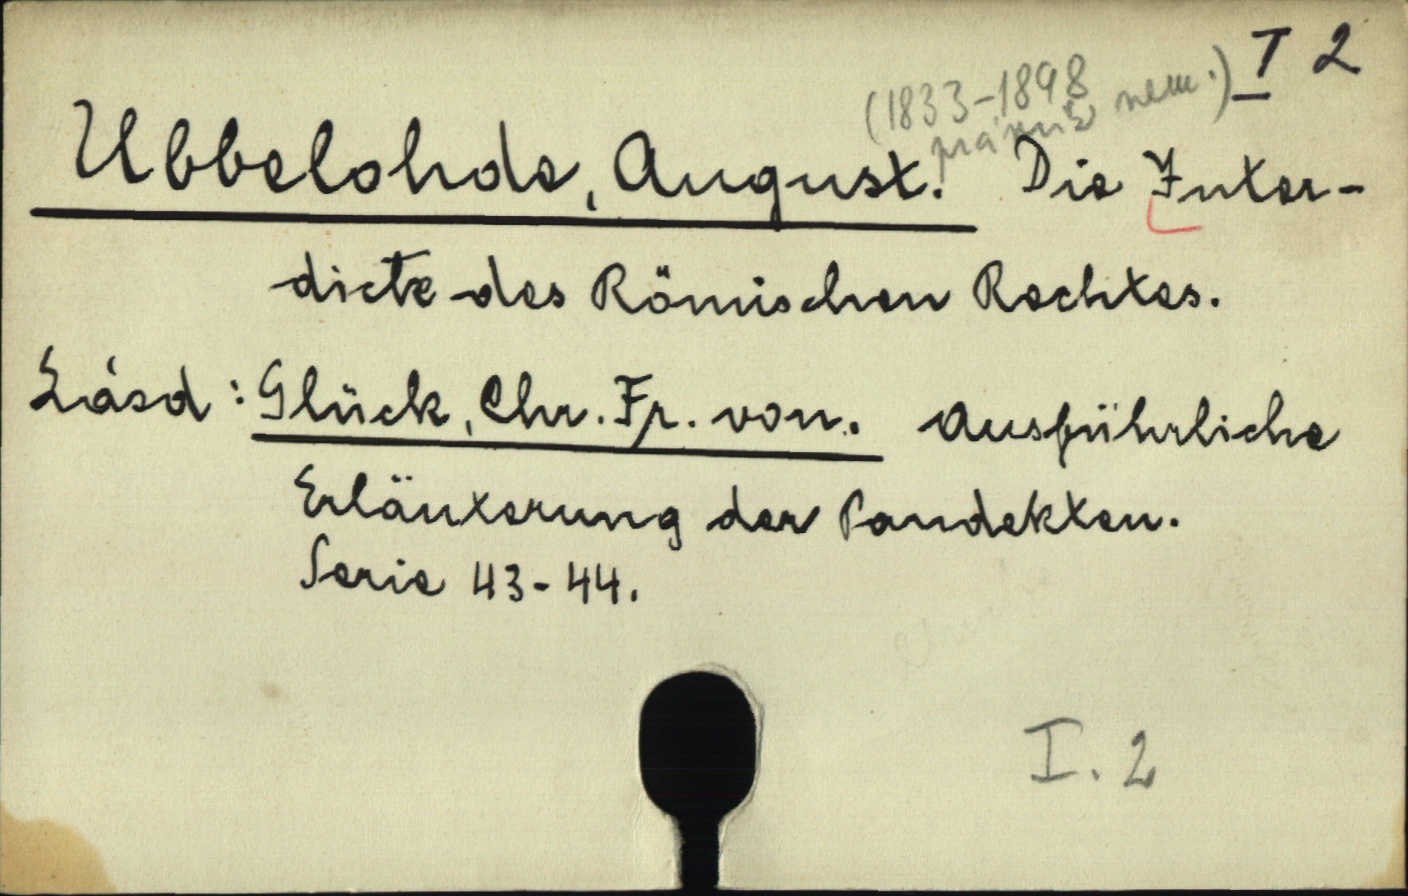 I 2
(1833-1898
právník něm.)
Ubbelohde, August. Die Inter-
dicte des Römischen Rechtes.
Lásd: Glück, Chr. Fr. von. Ausführliche
Erläuterung der Pandekten.
Serie 43-44.
I. 2